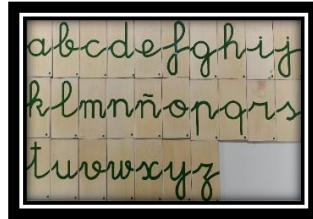 a b c d e f g h i j
k l m n ñ o p q r s
t u v w x y z